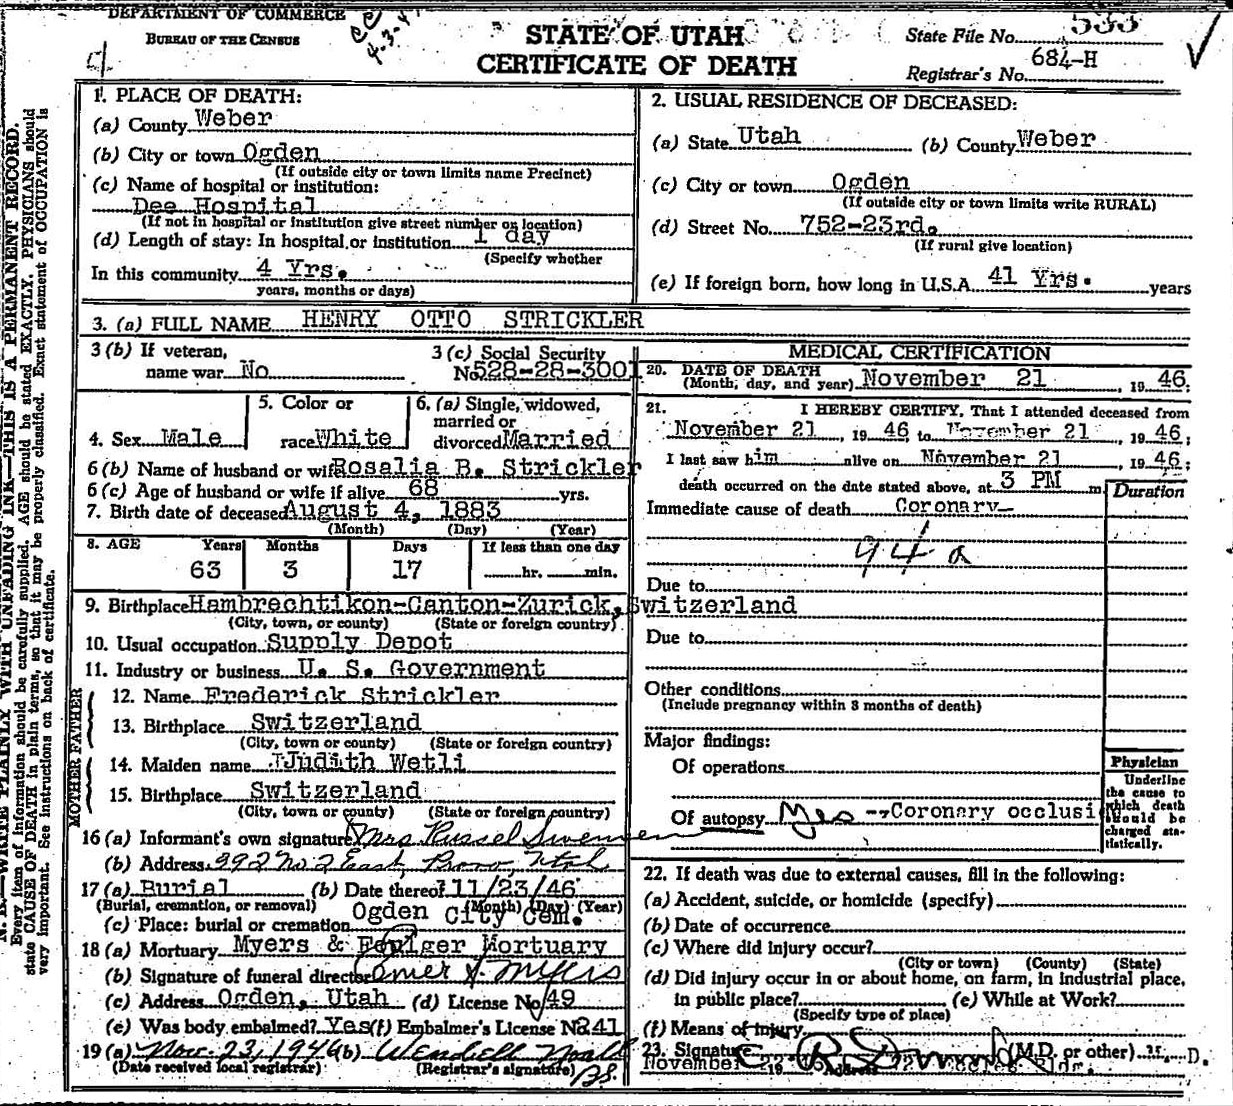 DEPARTMENT OF COMMERCE
BUREAU OF THE CENSUS
4-3-4
STATE OF UTAH
CERTIFICATE OF DEATH
State File No. 533
Registrar's No. 684-H
N. B.—WRITE PLAINLY WITH UNFADING INK—THIS IS A PERMANENT RECORD.
Every item of information should be carefully supplied. AGE should be stated EXACTLY. PHYSICIANS should
state CAUSE OF DEATH in plain terms, so that it may be properly classified. Exact statement of OCCUPATION is
very important. See instructions on back of certificate.
1. PLACE OF DEATH:
(a) County Weber
(b) City or town Ogden
(If outside city or town limits name Precinct)
(c) Name of hospital or institution:
Dee Hospital
(If not in hospital or institution give street number or location)
(d) Length of stay: In hospital or institution 1 day
(Specify whether
In this community 4 Yrs.
years, months or days)
2. USUAL RESIDENCE OF DECEASED:
(a) State Utah (b) County Weber
(c) City or town Ogden
(If outside city or town limits write RURAL)
(d) Street No. 752-23rd.
(If rural give location)
(e) If foreign born, how long in U.S.A. 41 Yrs. years
3. (a) FULL NAME HENRY OTTO STRICKLER
3 (b) If veteran,
name war No
3 (c) Social Security
No. 528-28-3001
4. Sex Male
5. Color or
race White
6. (a) Single, widowed,
married or
divorced Married
6 (b) Name of husband or wife Rosalia B. Strickler
6 (c) Age of husband or wife if alive 68 yrs.
7. Birth date of deceased August 4, 1883
(Month) (Day) (Year)
8. AGE Years Months Days If less than one day
63 3 17 hr. min.
9. Birthplace Hambrechtikon-Canton-Zurick, Switzerland
(City, town, or county) (State or foreign country)
10. Usual occupation Supply Depot
11. Industry or business U. S. Government
FATHER
12. Name Frederick Strickler
13. Birthplace Switzerland
(City, town or county) (State or foreign country)
MOTHER
14. Maiden name Judith Wetli
15. Birthplace Switzerland
(City, town or county) (State or foreign country)
16 (a) Informant's own signature Mrs Russel Swensen
(b) Address 292 No 2 East, Provo, Utah
17 (a) Burial (b) Date thereof 11/23/46
(Burial, cremation, or removal) (Month) (Day) (Year)
(c) Place: burial or cremation Ogden City Cem.
18 (a) Mortuary Myers & Foulger Mortuary
(b) Signature of funeral director Omer S. Myers
(c) Address Ogden, Utah (d) License No 49
(e) Was body embalmed? Yes (f) Embalmer's License No 241
19 (a) Nov. 23, 1946 (b) Wendell
(Date received local registrar) (Registrar's signature)
MEDICAL CERTIFICATION
20. DATE OF DEATH
(Month, day, and year) November 21, 1946.
21. I HEREBY CERTIFY, That I attended deceased from
November 21, 1946 to November 21, 1946;
I last saw him alive on November 21, 1946;
death occurred on the date stated above, at 3 PM m.
Duration
Immediate cause of death Coronary
94a
Due to
Due to
Other conditions
(Include pregnancy within 3 months of death)
Major findings:
Of operations
Of autopsy Yes -Coronary occlusi
Physician
Underline
the cause to
which death
should be
charged sta-
tistically.
22. If death was due to external causes, fill in the following:
(a) Accident, suicide, or homicide (specify)
(b) Date of occurrence
(c) Where did injury occur?
(City or town) (County) (State)
(d) Did injury occur in or about home, on farm, in industrial place,
in public place? (e) While at Work?
(Specify type of place)
(f) Means of Injury
23. Signature (M.D. or other) M. D.
November 22 19 Address Bldg.